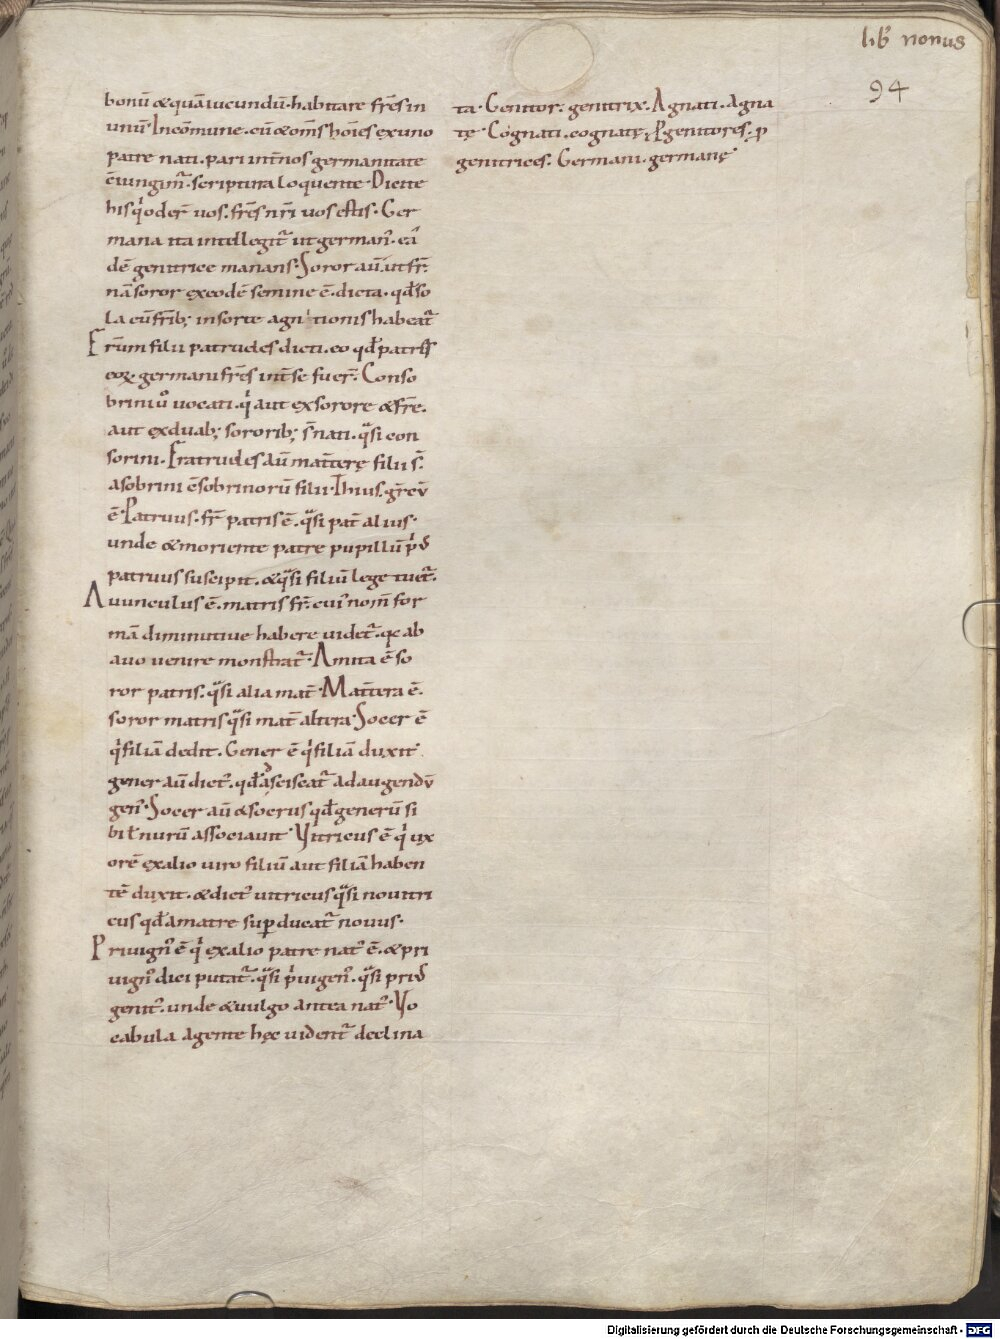 lib̄ nonus
94
bonū &quā iucundū· habitare fr̄es in
unū· In cōmune· cū &om̄s hoīes ex uno
patre nati· pari int̄ nos germanitate
c̄iungim̄· scriptura loquente· Dicite
his qͥ oder̄ uos· fr̄es nr̄i uos estis· Ger
mana ita intellegit᷑ ut german᷒· eā
dē genitrice manans· Soror aū ut fr̄·
nā soror ex eodē semine ē· dicta· qd̄ so
la cū fr̄ib; in sorte agnitionis habeat᷑
Fr̄um filii patrueles dicti· eo qd̄ patres
eoꝝ· germani fr̄es int̄ se fuer̄· Conso
brini ūo uocati· qͥ aut ex sorore & fr̄e·
aut ex duab; sororib; s̄ nati· qᵃsi con
sorini· Fratrueles aū mat̄terę filii s̄·
asobrini c̄sobrinorū filii· Thius· grecū
ē· Patruus· fr̄ patris ē· qᵃsi pat̄ alius·
unde &moriente patre pupillū pͥ᷒
patruus suscipit· &qᵃsi filiū lege tuet᷑·
Auunculus ē· matris fr̄· cui᷒ nom̄ for
mā diminutiue habere uidet᷑· qę ab
auo uenire monstrat᷑· Amita ē so
ror patris· qᵃsi alia mat̄· Mat̄tera ē·
soror matris qᵃsi mat̄ altera· Socer ē
qͥ filiā dedit· Gener ē qͥ filiā duxit·
gener aū dict᷒· qd̄ asciscat᷑ ad augendū
gen᷒· Socer aū &socrus qd̄ generū si
bi ł nurū associauit· Vitricus ē qͥ ux
orē ex alio uiro filiū aut filiā haben
tē duxit· &dict᷒ uitricus qᵃsi nouitri
cus qd̄ a matre suꝑ ducat᷑ nouus·
Priuign᷒ ē qͥ ex alio patre nat᷒ ē· &pri
uign᷒ dici putat᷑· qᵃsi pͥuigen᷒· qᵃsi pri᷒
genit᷒· unde &uulgo antea nat᷒· Vo
cabula a gente hęc uident᷑ declina
ta· Genitor· genitrix· Agnati· Agna
tę· Cognati· cognatę· Ꝓgenitores· ꝓ
genitrices· Germani· germanę·
Digitalisierung gefördert durch die Deutsche Forschungsgemeinschaft - DFG